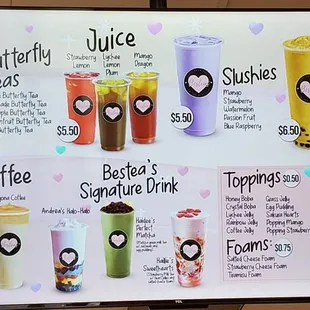 Butterfly
Teas
Butterfly Tea
Butterfly Tea
Butterfly Tea
Butterfly Tea
Butterfly Tea
Juice
Strawberry
Lemon
Lychee
Lemon
Plum
Mango
Dragon
$5.50
$5.50
Slushies
Mango
Strawberry
Watermelon
Passion Fruit
Blue Raspberry
$6.50
Coffee
Coffee
Bestea's
Signature Drink
Andrea's Halo-Halo
Haidee's
Perfect
Matcha
Hailie's
Sweethearts
Toppings $0.50
Honey Boba
Crystal Boba
Lychee Jelly
Rainbow Jelly
Coffee Jelly
Grass Jelly
Egg Pudding
Sakura Hearts
Popping Mango
Popping Strawberry
Foams: $0.75
Salted Cheese Foam
Strawberry Cheese Foam
Tiramisu Foam
TCL